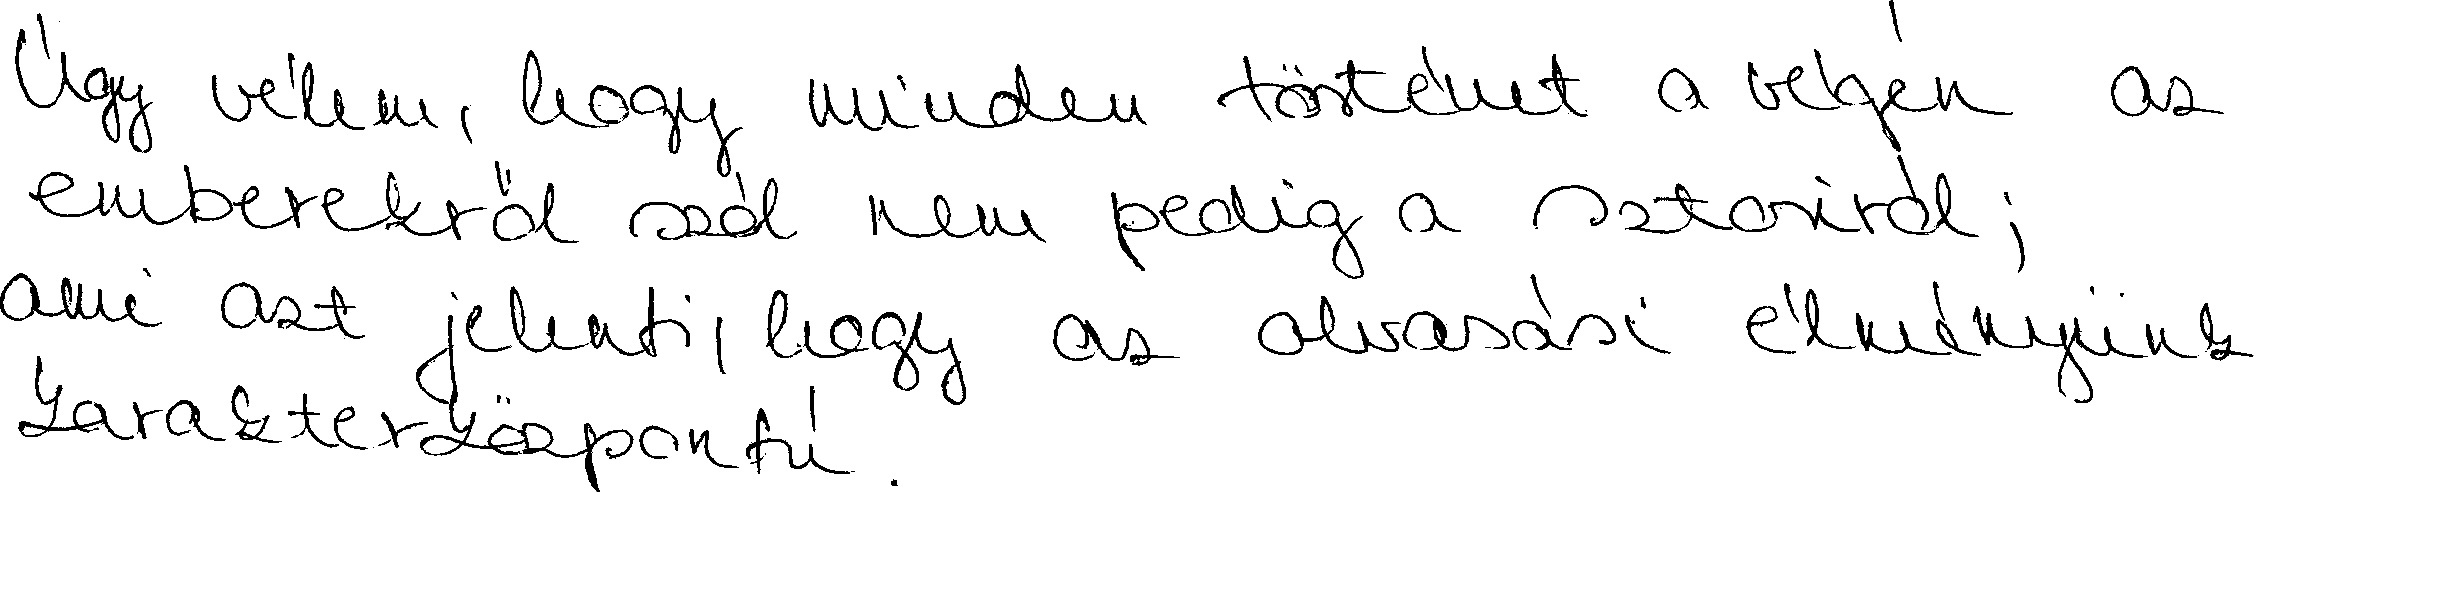 Úgy vélem, hogy minden történet a végén az
emberekről szól nem pedig a sztoriról;
ami azt jelenti, hogy az olvasási élményünk
karakterközpontú.